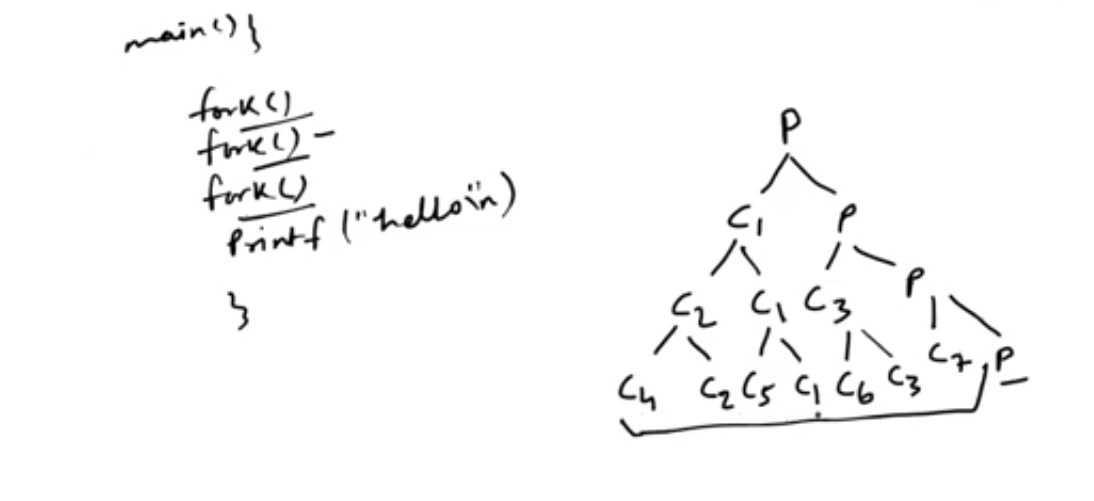 main() {
fork()
fork() -
fork()
printf ("hello\n)
}
P
C1 P
C2 C1 C3 P
C4 C2 C5 C1 C6 C3 C7 P